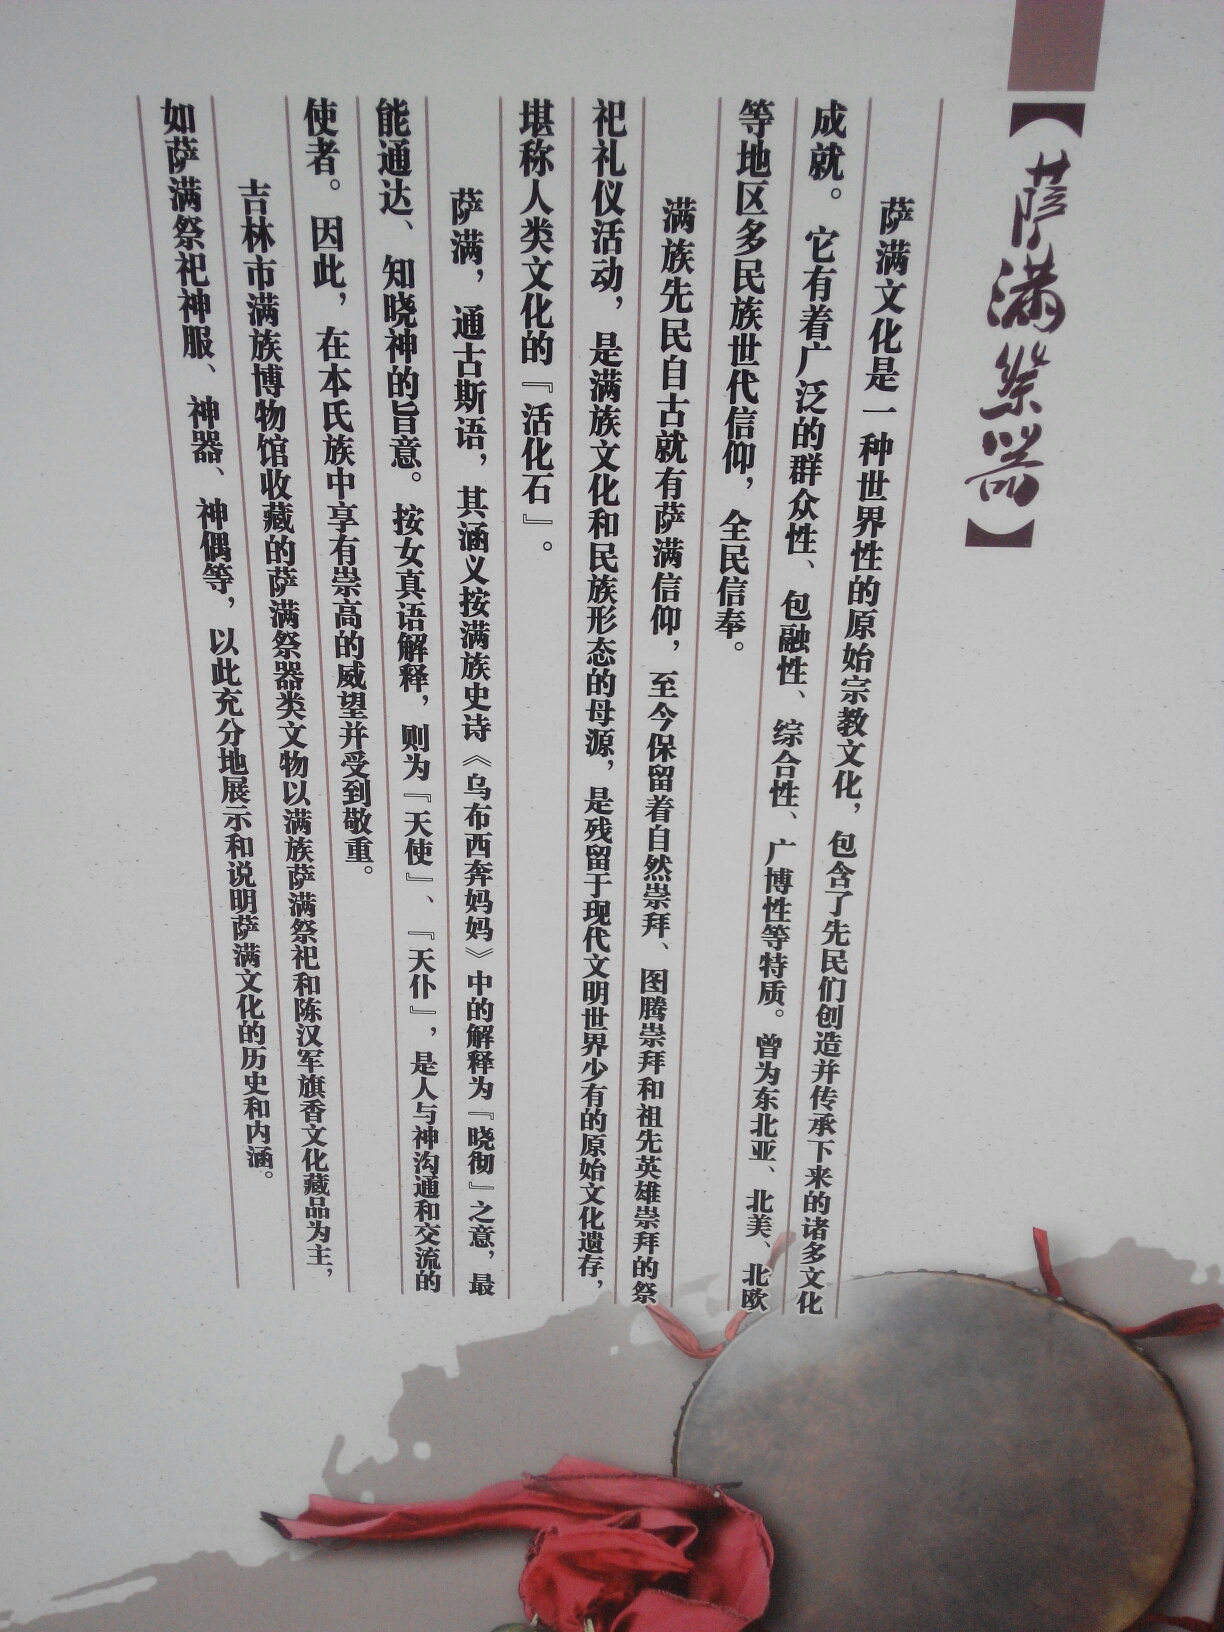 【萨满祭器】
萨满文化是一种世界性的原始宗教文化，包含了先民们创造并传承下来的诸多文化
成就。它有着广泛的群众性、包融性、综合性、广博性等特质。曾为东北亚、北美、北欧
等地区多民族世代信仰，全民信奉。
满族先民自古就有萨满信仰，至今保留着自然崇拜、图腾崇拜和祖先英雄崇拜的祭
祀礼仪活动，是满族文化和民族形态的母源，是残留于现代文明世界少有的原始文化遗存，
堪称人类文化的『活化石』。
萨满，通古斯语，其涵义按满族史诗《乌布西奔妈妈》中的解释为『晓彻』之意，最
能通达、知晓神的旨意。按女真语解释，则为『天使』、『天仆』，是人与神沟通和交流的
使者。因此，在本氏族中享有崇高的威望并受到敬重。
吉林市满族博物馆收藏的萨满祭器类文物以满族萨满祭祀和陈汉军旗香文化藏品为主，
如萨满祭祀神服、神器、神偶等，以此充分地展示和说明萨满文化的历史和内涵。